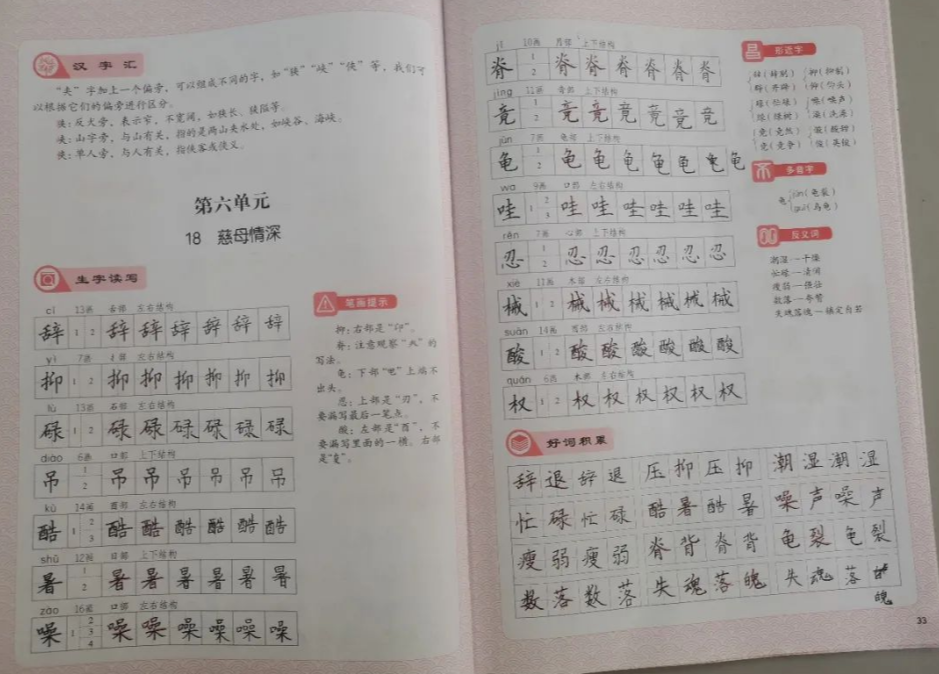 汉字汇
“夹”字加上一个偏旁，可以组成不同的字，如“狭”“峡”“侠”等，我们可
以根据它们的偏旁进行区分。
狭：反犬旁，表示窄，不宽阔，如狭长、狭隘等。
峡：山字旁，与山有关，指的是两山夹水处，如峡谷、海峡。
侠：单人旁，与人有关，指侠客或侠义。
第六单元
18 慈母情深
生字读写
cí 13画 舌部 左右结构
辞 1 2 辞 辞 辞 辞 辞 辞
yì 7画 扌部 左右结构
抑 1 2 抑 抑 抑 抑 抑 抑
lù 13画 石部 左右结构
碌 1 2 碌 碌 碌 碌 碌 碌
diào 6画 口部 上下结构
吊 1 2 吊 吊 吊 吊 吊 吊
kù 14画 酉部 左右结构
酷 1 2 3 酷 酷 酷 酷 酷 酷
shǔ 12画 日部 上下结构
暑 1 2 暑 暑 暑 暑 暑 暑
zào 16画 口部 左右结构
噪 1 2 3 4 噪 噪 噪 噪 噪 噪
笔画提示
抑：右部是“卬”。
脊：注意观察“火”的
写法。
龟：下部“电”上端不
出头。
忍：上部是“刃”，不
要漏写最后一笔点。
酸：左部是“酉”，不
要漏写里面的一横。右部
是“夋”。
jǐ 10画 月部 上下结构
脊 1 2 脊 脊 脊 脊 脊 脊
jìng 11画 音部 上下结构
竟 1 2 竟 竟 竟 竟 竟 竟
jūn 7画 龟部 上下结构
龟 1 2 龟 龟 龟 龟 龟 龟 龟
wa 9画 口部 左右结构
哇 1 2 3 哇 哇 哇 哇 哇 哇
rěn 7画 心部 上下结构
忍 1 2 忍 忍 忍 忍 忍 忍
xiè 11画 木部 左右结构
械 1 2 3 械 械 械 械 械 械
suān 14画 酉部 左右结构
酸 1 2 酸 酸 酸 酸 酸 酸
quán 6画 木部 左右结构
权 1 2 权 权 权 权 权 权
形近字
辞（辞别） 抑（抑制）
辟（开辟） 仰（仰头）
碌（忙碌） 噪（噪声）
绿（绿树） 澡（洗澡）
竟（竟然） 酸（酸甜）
竞（竞争） 俊（英俊）
多音字
龟 jūn（龟裂）
guī（乌龟）
反义词
潮湿—干燥
忙碌—清闲
瘦弱—强壮
数落—夸赞
失魂落魄—镇定自若
好词积累
辞退辞退 压抑压抑 潮湿潮湿
忙碌忙碌 酷暑酷暑 噪声噪声
瘦弱瘦弱 脊背脊背 龟裂龟裂
数落数落 失魂落魄 失魂落
魄
33